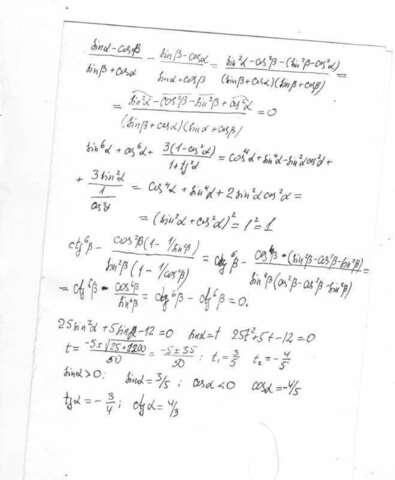 (sinα-cosβ)/(sinβ+cosα) - (sinβ-cosα)/(sinα+cosβ) = (sin²α-cos²β-(sin²β-cos²α))/((sinβ+cosα)(sinβ+cosβ)) =
= (sin²α-cos²β-sin²β+cos²α)/((sinβ+cosα)(sinα+cosβ)) = 0
sin⁶α+cos⁶α+ 3(1-cos²α)/(1+tg²α) = cos⁴α+sin⁴α-sin²αcos²α+
+ 3sin²α/(1/cos²α) = cos⁴α+sin⁴α+2sin²αcos²α=
= (sin²α+cos²α)²=1²=1
ctg⁶β- cos²β(1-1/sin²β)/(sin²β(1-1/cos²β)) = ctg⁶β-
= ctg⁶β- cos⁶β/sin⁶β = ctg⁶β-ctg⁶β=0.
25sin²α+5sinα-12=0 sinα=t 25t²+5t-12=0
t= (-5±√(25+1200))/50 = (-5±35)/50 ; t₁=3/5 t₂=-4/5
sinα>0; sinα=3/5; cosα<0 cosα=-4/5
tgα=-3/4; ctgα=4/3